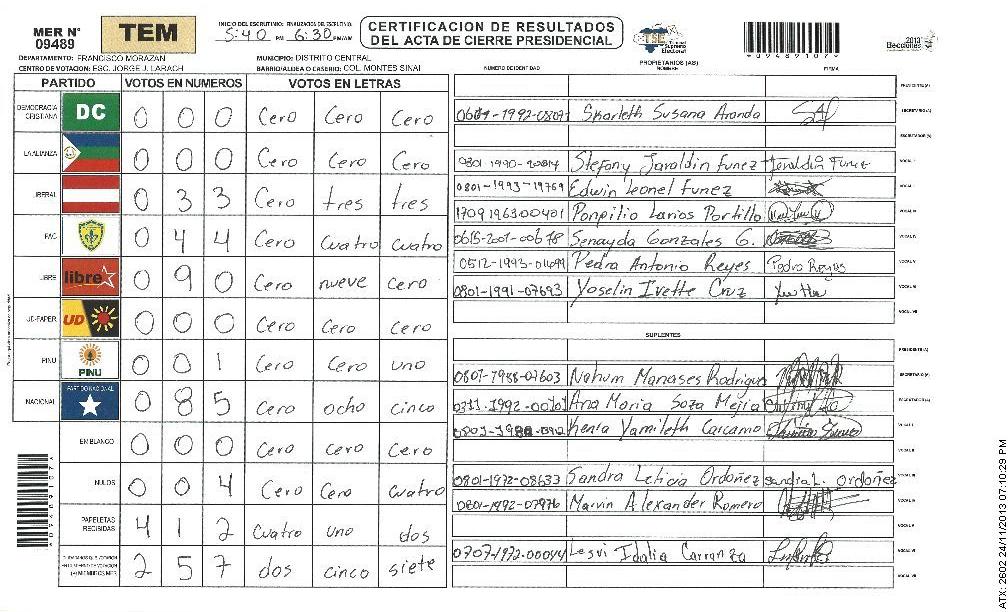 MER N° 09489
TEM
INICIO DEL ESCRUTINIO: FINALIZACION DEL ESCRUTINIO:
5:40 PM 6:30 PM/AM
CERTIFICACION DE RESULTADOS
DEL ACTA DE CIERRE PRESIDENCIAL
TSE
Tribunal Supremo Electoral
2013 Elecciones
*09489107*
DEPARTAMENTO: FRANCISCO MORAZAN
MUNICIPIO: DISTRITO CENTRAL
CENTRO DE VOTACION: ESC. JORGE J. LARACH
BARRIO/ALDEA O CASERIO: COL. MONTES SINAI
PARTIDO VOTOS EN NUMEROS VOTOS EN LETRAS
DEMOCRACIA CRISTIANA DC 0 0 0 Cero Cero Cero
LA ALIANZA 0 0 0 Cero Cero Cero
LIBERAL 0 3 3 Cero tres tres
PAC 0 4 4 Cero Cuatro cuatro
LIBRE libre 0 9 0 Cero nueve cero
UD-FAPER UD 0 0 0 Cero Cero Cero
PINU PINU 0 0 1 Cero Cero uno
NACIONAL PARTIDO NACIONAL 0 8 5 Cero ocho cinco
EN BLANCO 0 0 0 Cero Cero Cero
NULOS 0 0 4 Cero Cero Cuatro
PAPELETAS RECIBIDAS 4 1 2 Cuatro uno dos
2 5 7 dos cinco siete
*09489107*
NUMERO DE IDENTIDAD
PROPIETARIOS (AS)
NOMBRE
FIRMA
PRESIDENTE (A)
Skarleth Susana Aranda SECRETARIO (A)
ESCRUTADOR (A)
Stefony Jaraldin funez Jeraldin Funez VOCAL I
0801-1993-19769 Edwin Leonel Funez
1709196300401 Ponpilio Larios Portillo
0615-2001-00678 Senayda Gonzales G.
Pedro Antonio Reyes Pedro Reyes VOCAL V
0801-1991-07693 Yoselin Ivette Cruz VOCAL VI
VOCAL VII
SUPLENTES
PRESIDENTE (A)
Nahum Manases Rodriguez SECRETARIO (A)
Ana Maria Soza Mejia ESCRUTADOR (A)
Kenia Yamileth Carcamo VOCAL I
VOCAL II
0801-1972-08633 Sandra Leticia Ordoñez Sandra L. Ordoñez VOCAL III
0801-1992-07976 Marvin Alexander Romero VOCAL IV
VOCAL V
0707-1972-00044 Lesvi Idalia Carranza VOCAL VI
VOCAL VII
ATX: 2602 24/11/2013 07:10:29 PM